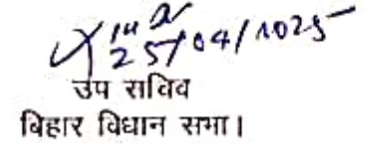 25/04/2025
उप सचिव
बिहार विधान सभा।